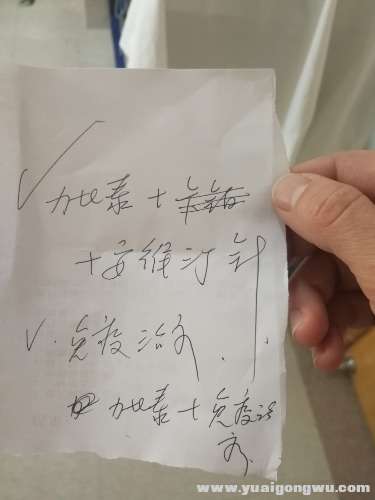 √ 力比泰 + 卡铂
+ 安维汀针
√. 免疫治疗.
力比泰 + 免疫治
疗
www.yuaigongwu.com